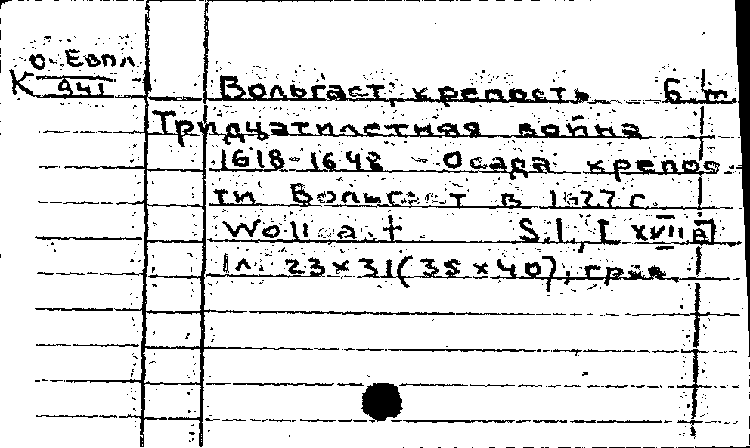 О. Евпл
К 941
Вольгаст, крепость Б.m
Тридцатилетная война
1618-1648 - Осада крепос-
ти Вольгаст в 1627 г.
S.l., [XVII в]
1л. 23×31(35×40), грав.